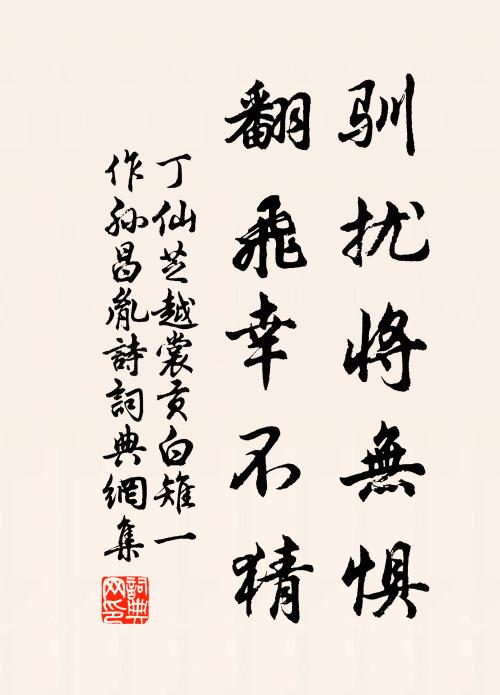 驯扰将無惧
翻飛幸不猜
丁仙芝越裳贡白雉一
作孙昌胤詩詞典網集
詞典
网印